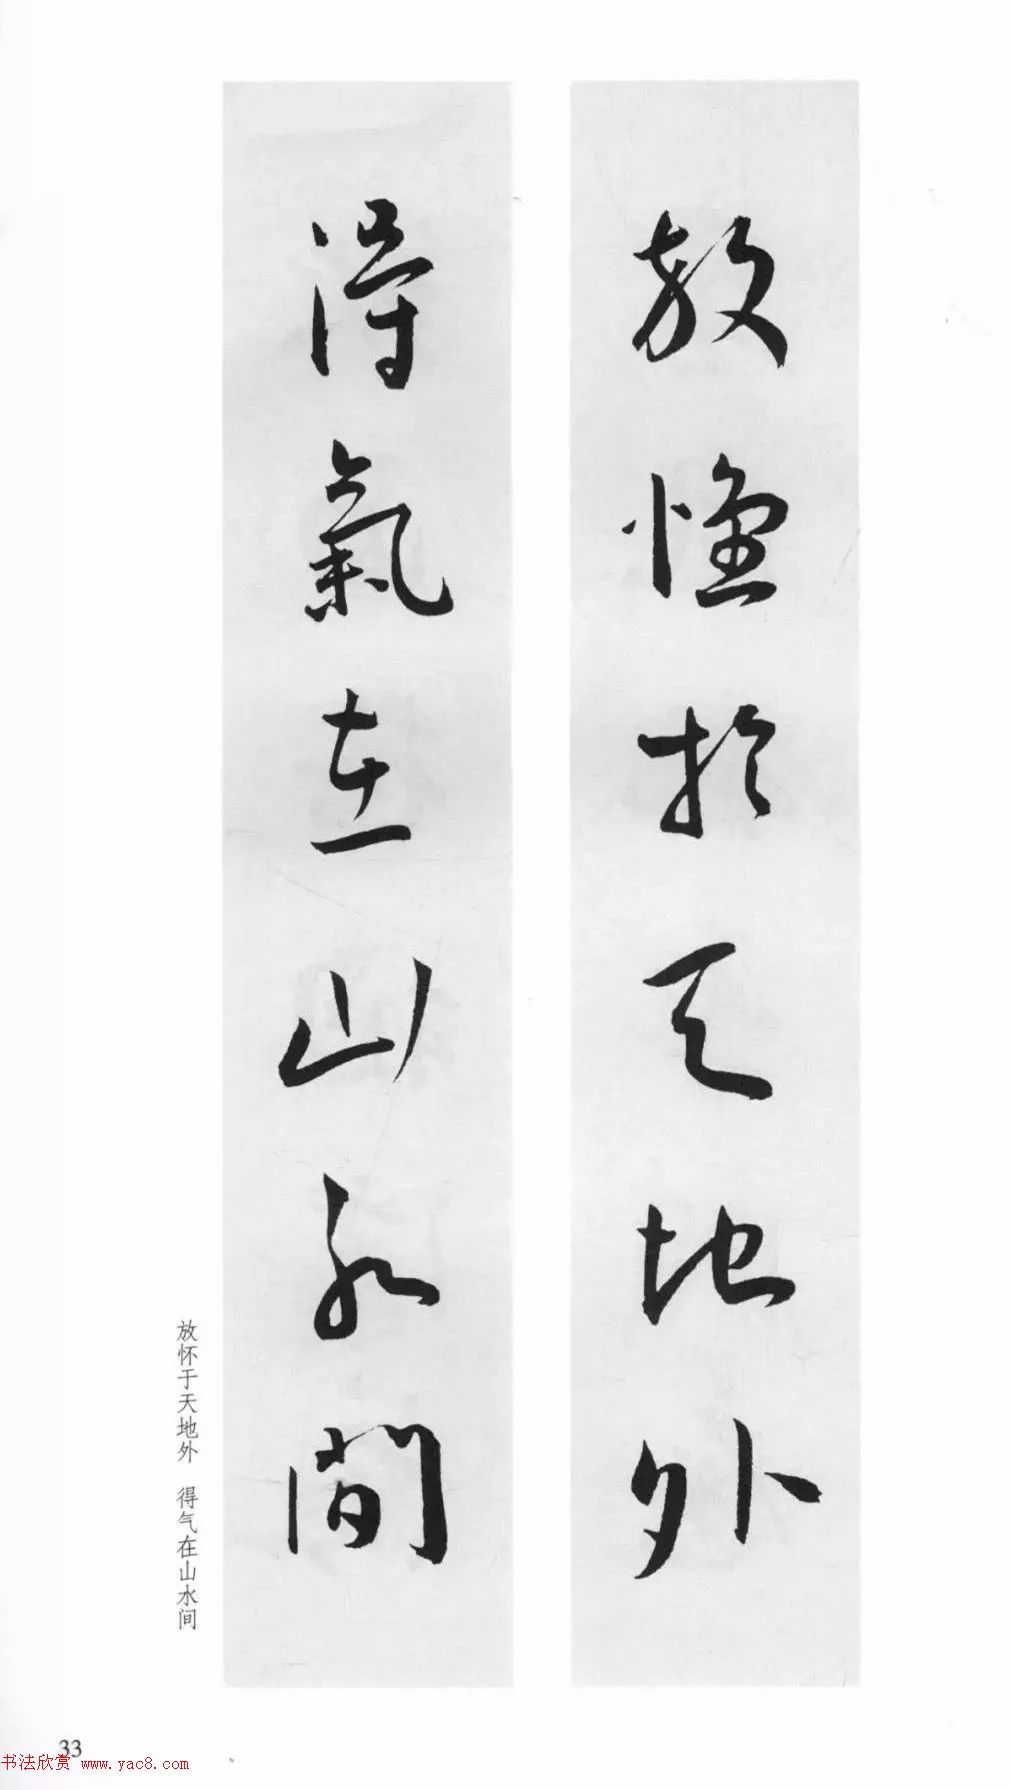 放懐於天地外
得氣在山水間
放怀于天地外　得气在山水间
33
书法欣赏 www.yac8.com